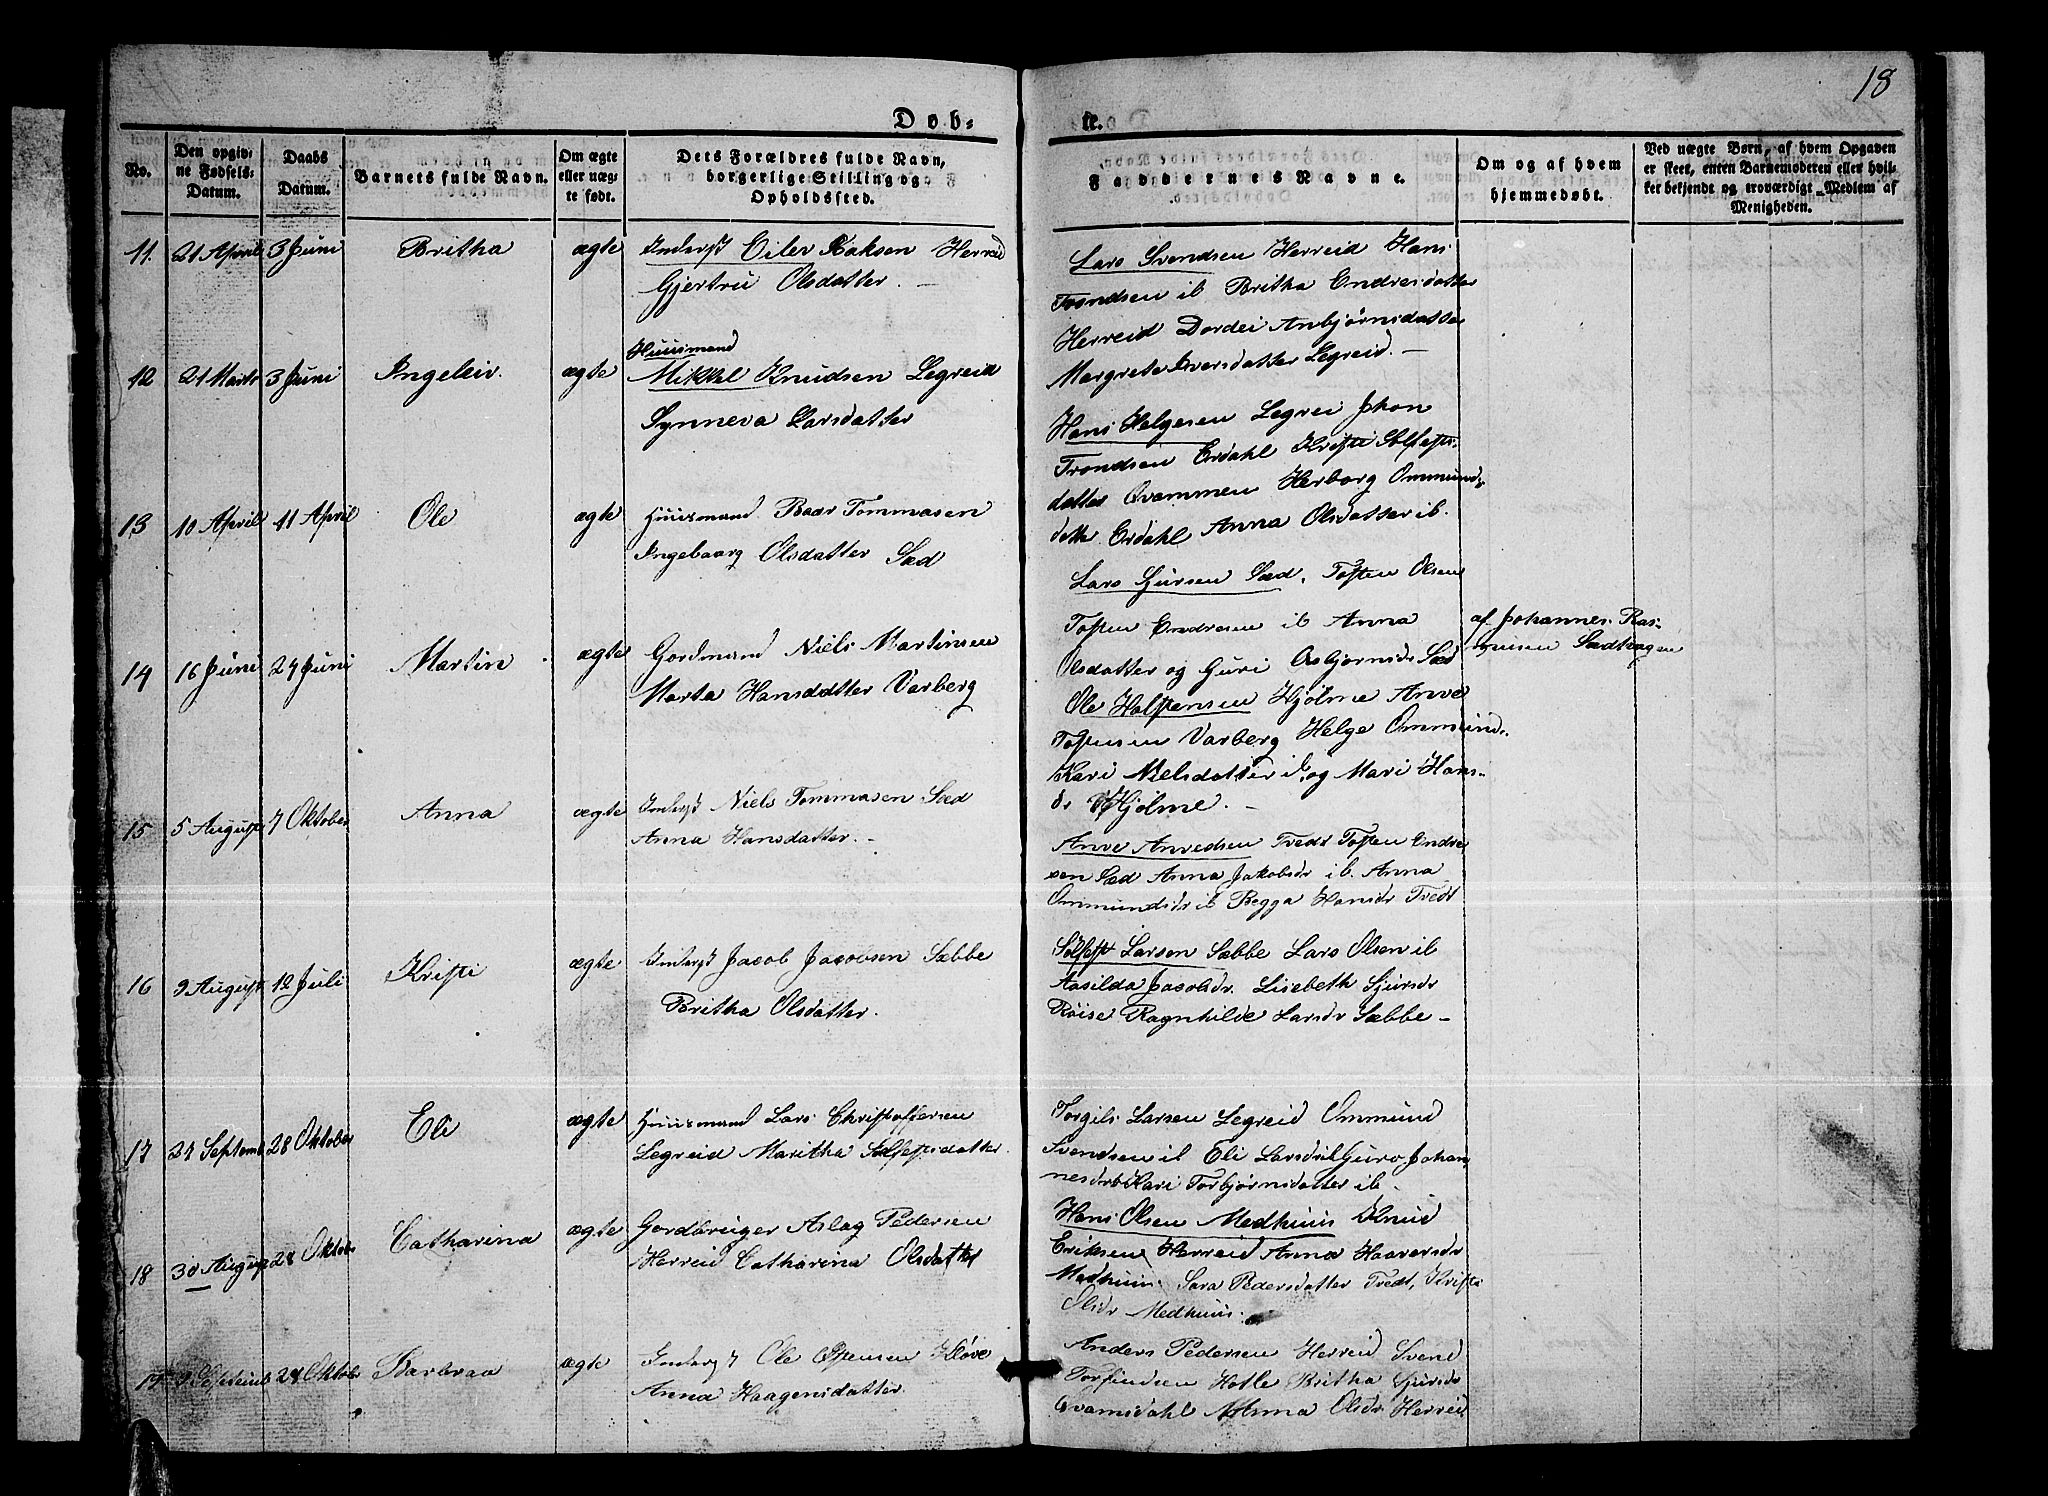 18
Døb-
te.
No.
Den opgiv-
ne Fødsels-
Datum.
Daabs
Datum.
Barnets fulde Navn.
Om ægte
eller uæg-
te født.
Dets Forældres fulde Navn,
borgerlige Stilling og
Opholdssted.
Faddernes Navne.
Om og af hvem
hjemmedøbt.
Ved uægte Børn, af hvem Opgaven
er skeet, enten Barnemoderen eller hvil-
ket bekjendt og troværdigt Medlem af
Menigheden.
11. 21 April 3 Juni Britha ægte Inderst Eilev Baksen Herreid
Gjertru Olsdatter.
Lars Svendsen Herreid Hans
Trondsen ib Britha Endresdatter
Herreid Dordei Anbjørnsdatter
Margrete Iversdatter Legreid.
12 21 Marts 3 Juni Ingeleiv. ægte Huusmand
Mikkel Knudsen Legreid
Synneva Larsdatter
Hans Helgesen Legrei Jhon
Trondsen Erdahl Kristi Solfests-
datter Qvammen Herborg Ommunds-
datter Erdahl Anna Olsdatter ib.
13 10 April 11 April Ole ægte Huusmand Baar Tommasen
Ingebaarg Olsdatter Sæd
Lars Gursen Sæd, Tosten Olsen
Tosten Endresen ib Anna
Olsdatter og Guri Asbjornsdr Sæd
af Johannes Ras-
musen Sædtragen
14 16 Juni 24 Juni Martin ægte Gordmand Niels Martinsen
Marta Hansdatter Varberg
Ole Holstensen Hjølme Anve
Tostensen Varberg Helge Ommunds.
Kari Nielsdatter ib og Mari Hans-
dr Hjølme.
15 5 August 7 Oktober Anna ægte Inderst Niels Tommasen Sæd
Anna Hansdatter.
Anve Anvedsen Tvedt Tosten Endre
sen Sæd Anna Jakobsdr ib. Anna
Ommundsdr ib Begga Hansdr Tvedt
16 9 August 12 Juli Kristi ægte Inderst Jacob Jacobsen Sæbbe
Britha Olsdatter.
Solfest Larsen Sæbbe Lars Olsen ib
Aasilda Jacobsdr. Lisebeth Sjursdr
Røise Ragnhilde Larsdr Sæbbe
17 27 Septemb 28 Oktober Eli ægte Huusmand Lars Christoffersen
Legreid Maritha Solfestsdatter.
Torgils Larsen Legreid Ommund
Svendsen ib Eli Larsdr ib Guro Johan
nesdr ib Kari Torbjørnsdatter ib.
18 30 August 28 Oktob Catharina ægte Gordbruger Aslag Pedersen
Herreid Catharina Olsdatter
Hans Olsen Medhuus Knud
Eriksen Herreid Anna Haaversdr
Medhuus. Sara Pedersdatter Tvedt, Kristi
Olsdr Medhuus.
19 9 Septemb 28 Oktob Barbraa ægte Inderst Ole Østensen Kløve
Anna Haagensdatter.
Anders Pedersen Herreid Svend
Torfindsen Hotle Britha Sjursdr
Qvamsdahl Anna Olsdr Herreid